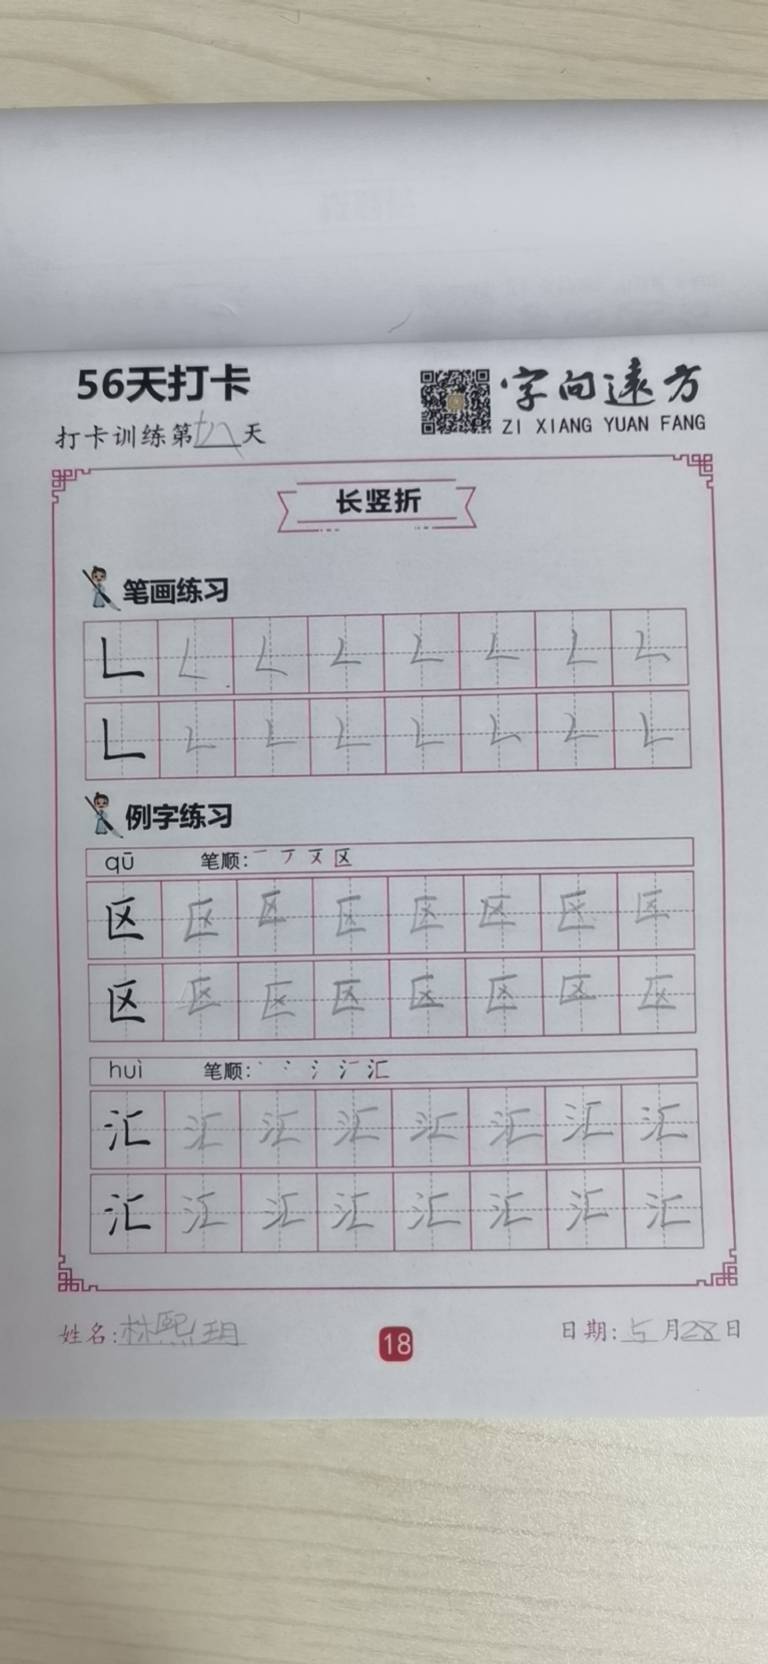 56天打卡
字向远方
ZI XIANG YUAN FANG
打卡训练第十八天
长竖折
笔画练习
例字练习
qū 笔顺: 一 丆 又 区
区 区 区 区 区 区 区 区
区 区 区 区 区 区 区 区
huì 笔顺: 丶 冫 氵 汇 汇
汇 汇 汇 汇 汇 汇 汇 汇
汇 汇 汇 汇 汇 汇 汇 汇
姓名:林熙玥
18
日期:5月28日